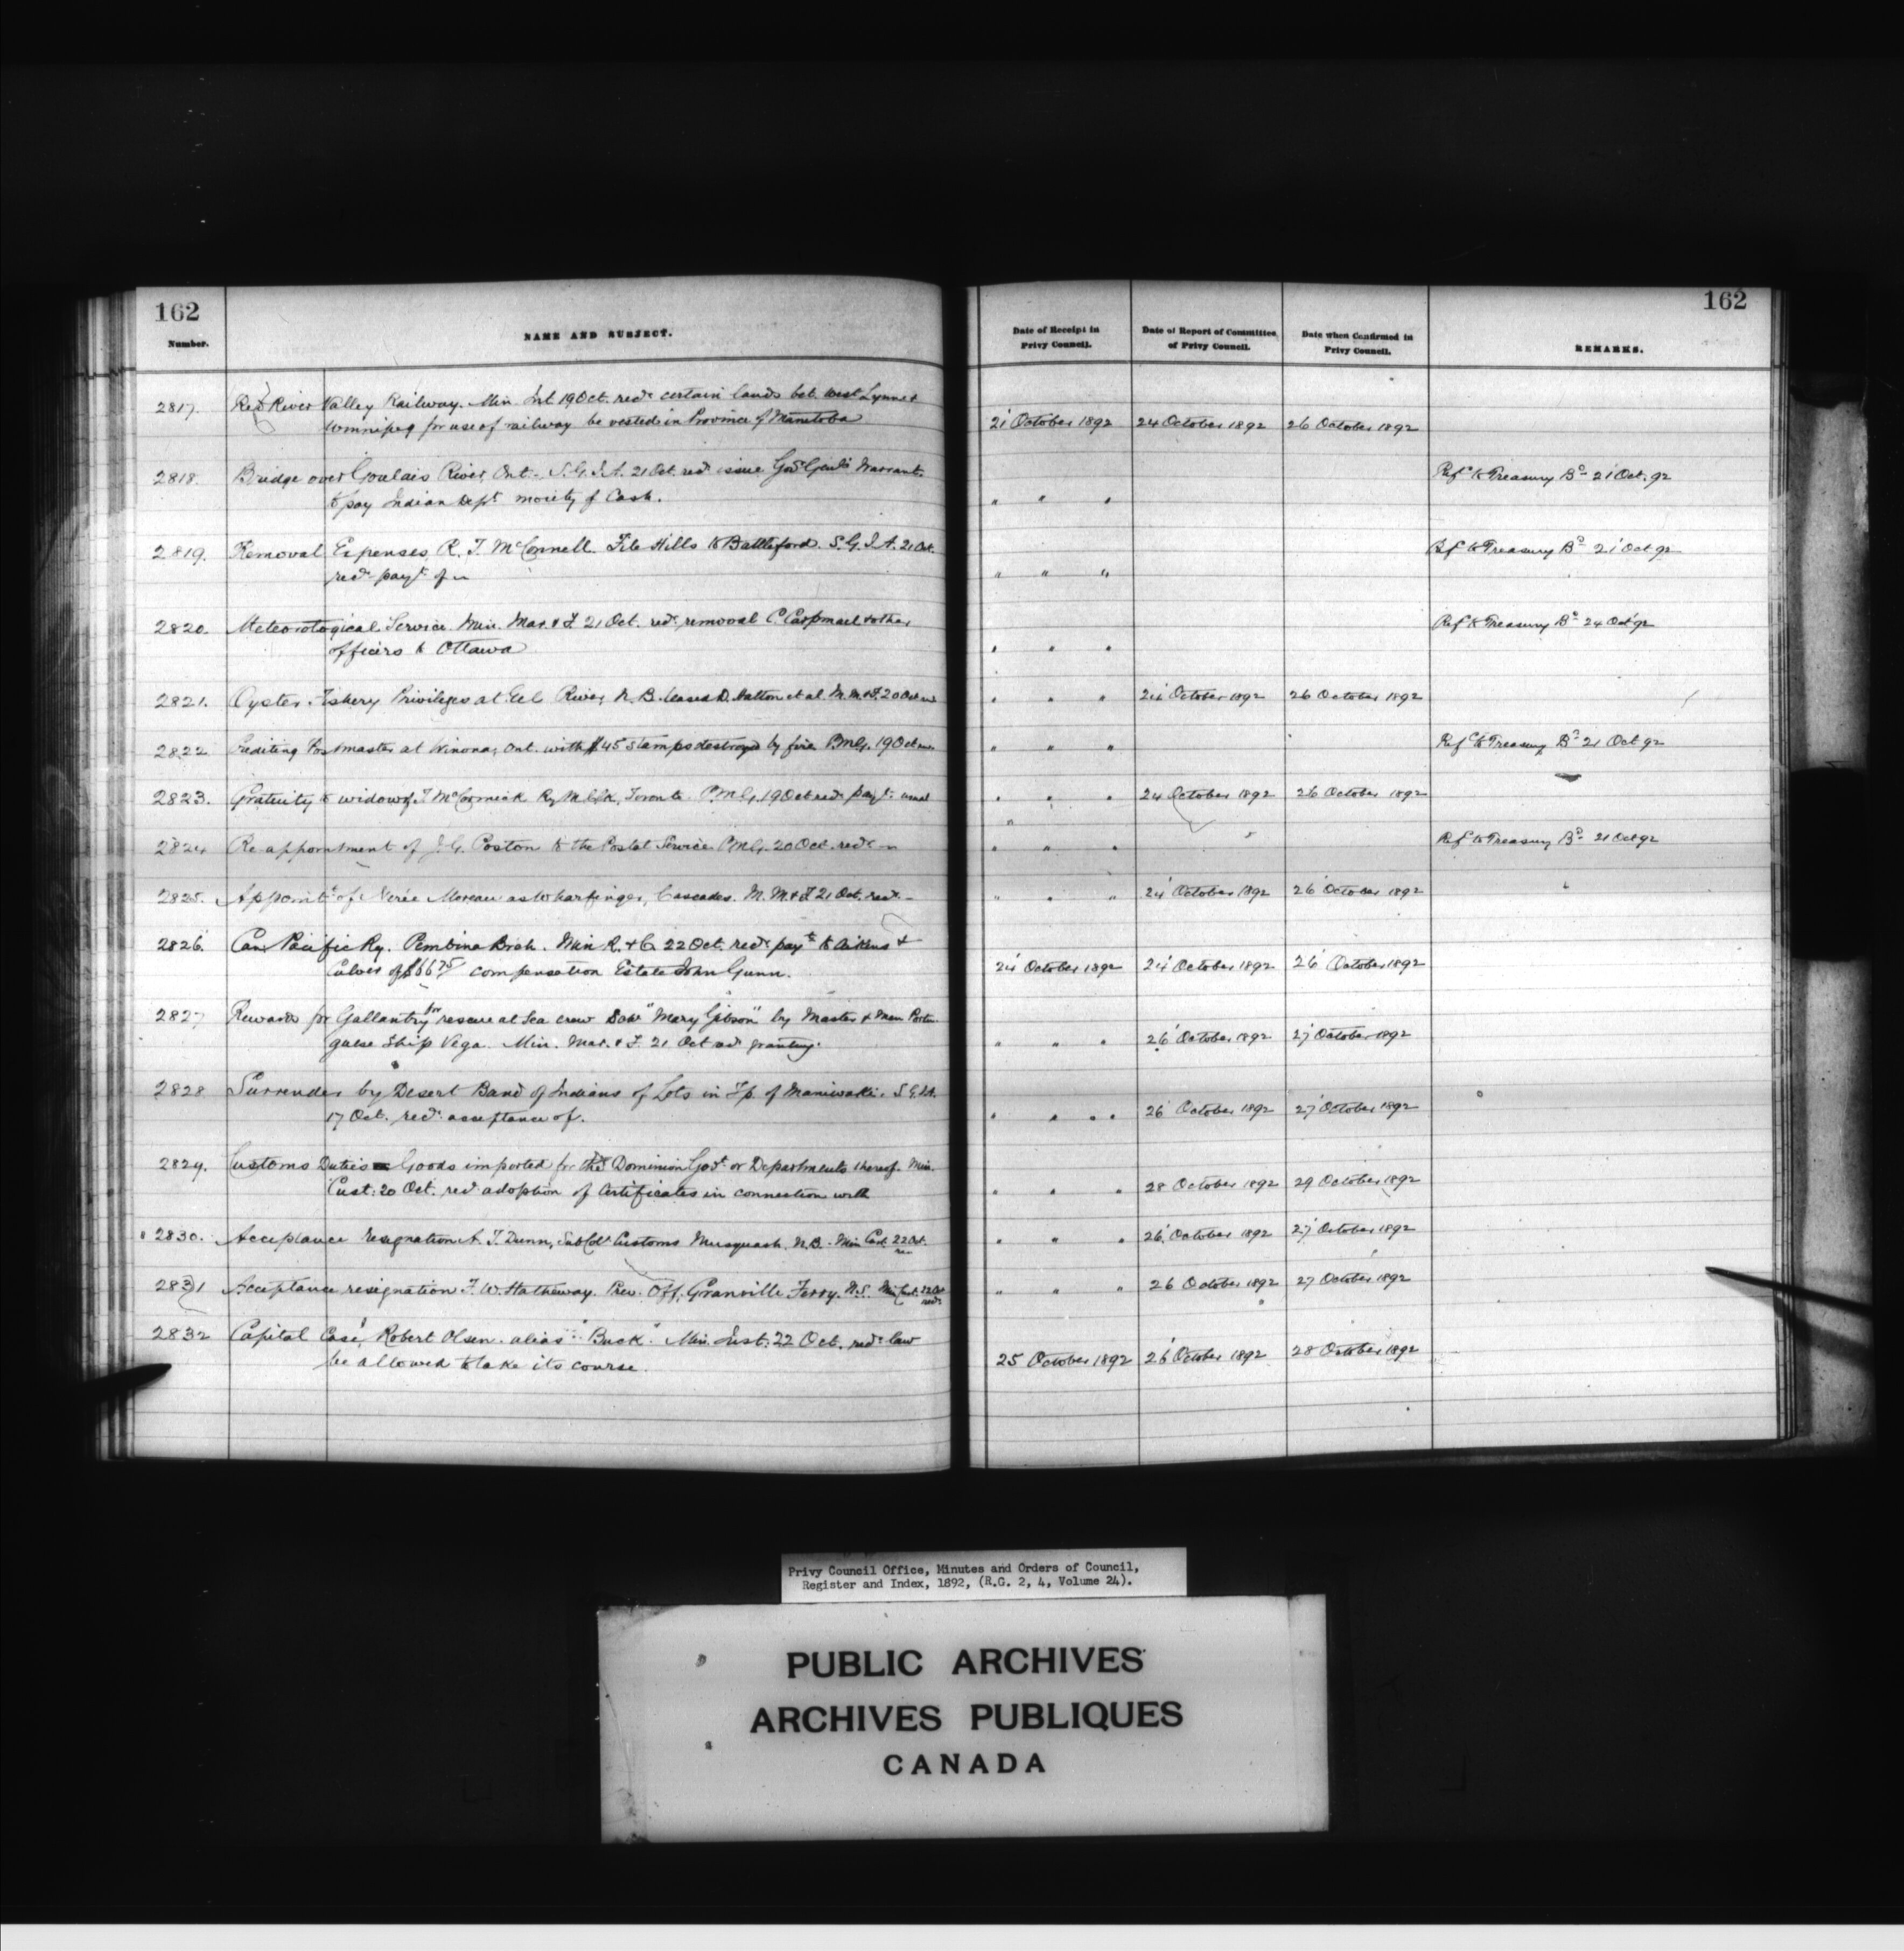 162
162
Number.
NAME AND SUBJECT.
Date of Receipt in Privy Council.
Date of Report of Committee of Privy Council.
Date when Confirmed in Privy Council.
REMARKS.
2817. Red River Valley Railway. Min. Int. 19 Oct. recd. certain lands bet. West Lynne &
Winnipeg for use of railway be vested in Province of Manitoba 21 October 1892 24 October 1892 26 October 1892
2818. Bridge over Goulais River, Ont. S.G.I.A. 21 Oct. recd. issue Govr Genl's Warrant Refd to Treasury Bd 21 Oct. 92
to pay Indian Dept moiety of Cash. " " "
2819. Removal Expenses R. J. McConnell. File Hills to Battleford. S.G.I.A. 21 Oct. Ref to Treasury Bd 21 Oct 92
recd. payt of — " " "
2820. Meteorological Service. Min. Mar. & F. 21 Oct. recd. removal C. Carpmael & other Ref to Treasury Bd 24 Oct 92
officers to Ottawa " " "
2821. Oyster Fishery Privileges at Eel River, N.B. lease D. Hatton et al. M.M.&F. 20 Oct " " " 24 October 1892 26 October 1892
2822 Crediting Postmaster at Winona, Ont. with $45 Stamps destroyed by fire P.M.G. 19 Oct " " " Refd to Treasury Bd 21 Oct 92
2823. Gratuity to widow of J. McCormick Ry M. Clk, Toronto. P.M.G. 19 Oct recd payt usual " " " 24 October 1892 26 October 1892
2824 Re appointment of J. G. Poston to the Postal Service. P.M.G. 20 Oct. recd — " " " Ref to Treasury Bd 21 Oct 92
2825. Appointt of Nerée Moreau as Wharfinger, Cascades. M.M.&F. 21 Oct. recd — " " " 24 October 1892 26 October 1892
2826. Can. Pacific Ry. Pembina Brch. Min R. & C. 22 Oct. recd. payt to Aikins &
Culver of $6675 compensation Estate John Gunn. 24 October 1892 24 October 1892 26 October 1892
2827 Rewards for Gallantry for rescue at Sea crew "Mary Gibson" by Master & Men Portu-
guese Ship Vega. Min. Mar. & F. 21 Oct recd granting. " " " 26 October 1892 27 October 1892
2828 Surrender by Desert Band of Indians of Lots in Tp. of Maniwaki. S.G.I.A.
17 Oct. recd. acceptance of. " " " 26 October 1892 27 October 1892
2829. Customs Duties Goods imported for the Dominion Govt or Departments thereof. Min.
Cust: 20 Oct. recd adoption of Certificates in connection with " " " 28 October 1892 29 October 1892
2830. Acceptance resignation A. J. Dunn, Sub Colr Customs Musquash. N.B. Min Cust. 22 Oct. " " " 26 October 1892 27 October 1892
2831 Acceptance resignation F. W. Hatheway. Prev. Off. Granville Ferry. N.S. Min Cust. 22 Oct recd " " " 26 October 1892 27 October 1892
2832 Capital Case, Robert Olsen. alias "Buck". Min. Just: 22 Oct. recd. law
be allowed to take its course. 25 October 1892 26 October 1892 28 October 1892
Privy Council Office, Minutes and Orders of Council,
Register and Index, 1892, (R.G. 2, 4, Volume 24).
PUBLIC ARCHIVES
ARCHIVES PUBLIQUES
CANADA